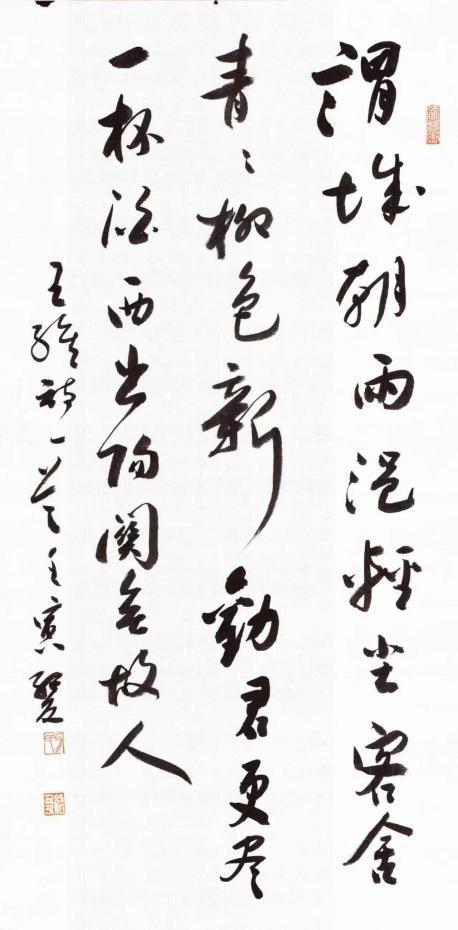 渭城朝雨浥輕尘客舍
青々柳色新勸君更尽
一杯酒西出陽關無故人
王維詩一首壬寅